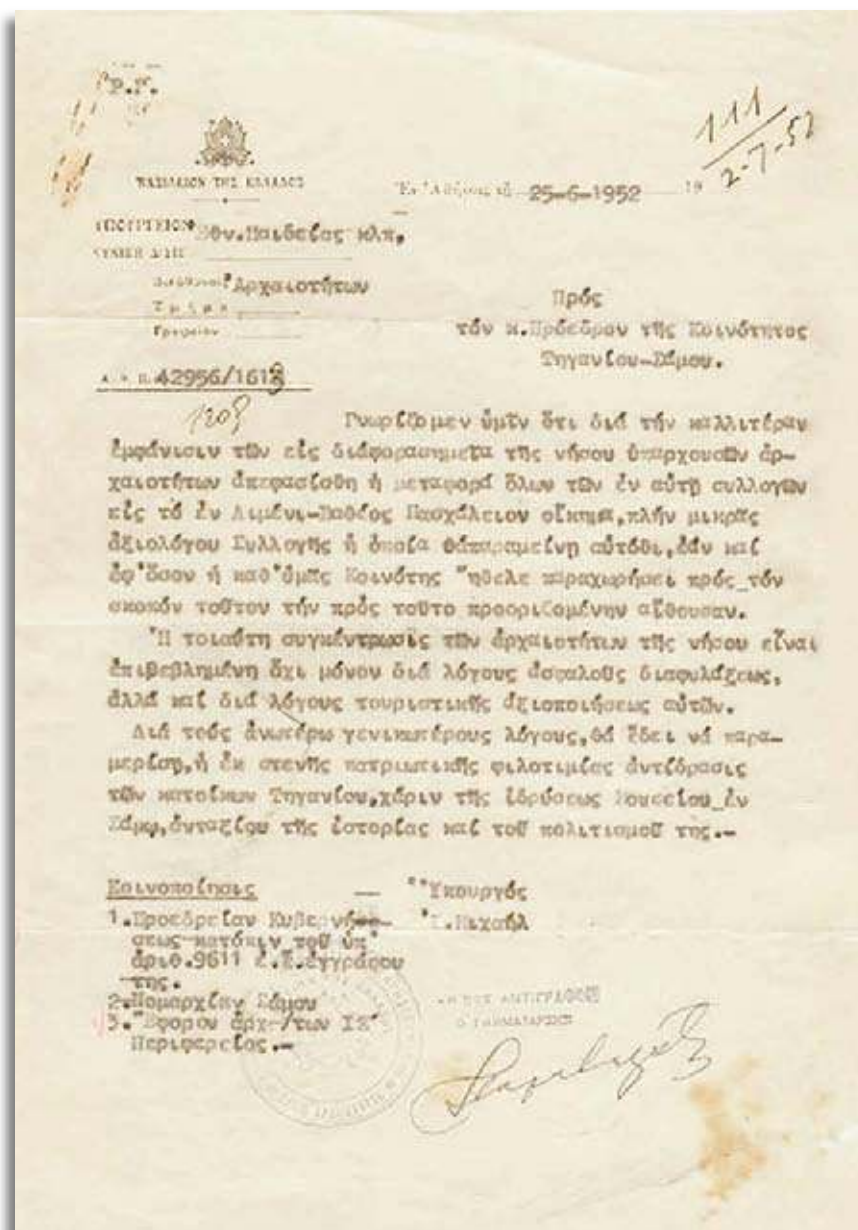 Ρ.Γ.
111
2-7-52
ΒΑΣΙΛΕΙΟΝ ΤΗΣ ΕΛΛΑΔΟΣ
Ἐν Ἀθήναις τῇ 25-6-1952 19
ΥΠΟΥΡΓΕΙΟΝ Ἐθν.Παιδείας κλπ.
Διεύθυνσις Ἀρχαιοτήτων
Τμῆμα
Γραφεῖον
Πρός
τόν κ.Πρόεδρον τῆς Κοινότητος
Τηγανίου-Σάμου.
Α. Π. 42956/1618
1208
Γνωρίζομεν ὑμῖν ὅτι διά τήν καλλιτέραν
ἐμφάνισιν τῶν εἰς διάφορασημεῖα τῆς νήσου ὑπαρχουσῶν ἀρ-
χαιοτήτων ἀπεφασίσθη ἡ μεταφορά ὅλων τῶν ἐν αὐτῇ συλλογῶν
εἰς τό ἐν Λιμένι-Βαθέος Πασχάλειον οἴκημα,πλήν μικρᾶς
ἀξιολόγου Συλλογῆς ἡ ὁποία θάπαραμείνῃ αὐτόθι,ἐάν καί
ἐφ'ὅσον ἡ καθ'ὑμᾶς Κοινότης ἤθελε παραχωρήσει πρός τόν
σκοπόν τοῦτον τήν πρός τοῦτο προοριζομένην αἴθουσαν.
Ἡ τοιαύτη συγκέντρωσις τῶν ἀρχαιοτήτων τῆς νήσου εἶναι
ἐπιβεβλημένη ὄχι μόνον διά λόγους ἀσφαλοῦς διαφυλάξεως,
ἀλλά καί διά λόγους τουριστικῆς ἀξιοποιήσεως αὐτῶν.
Διά τούς ἀνωτέρω γενικωτέρους λόγους,θά ἔδει νά παρα-
μερίσῃ,ἡ ἐκ στενῆς πατριωτικῆς φιλοτιμίας ἀντίδρασις
τῶν κατοίκων Τηγανίου,χάριν τῆς ἱδρύσεως Μουσείου ἐν
Σάμῳ,ἀνταξίου τῆς ἱστορίας καί τοῦ πολιτισμοῦ της.-
Κοινοποίησις — Ὑπουργός
1.Προεδρείαν Κυβερνή- Ἰ.Μιχαήλ
σεως κατόπιν τοῦ ὑπ'
ἀριθ.9611 ἐ.ἔ.ἐγγράφου
της.
2.Νομαρχίαν Σάμου
3.Ἔφορον ἀρχ/των ΙΣ
Περιφερείας.-
ΑΝΤΙΓΡΑΦΟΝ